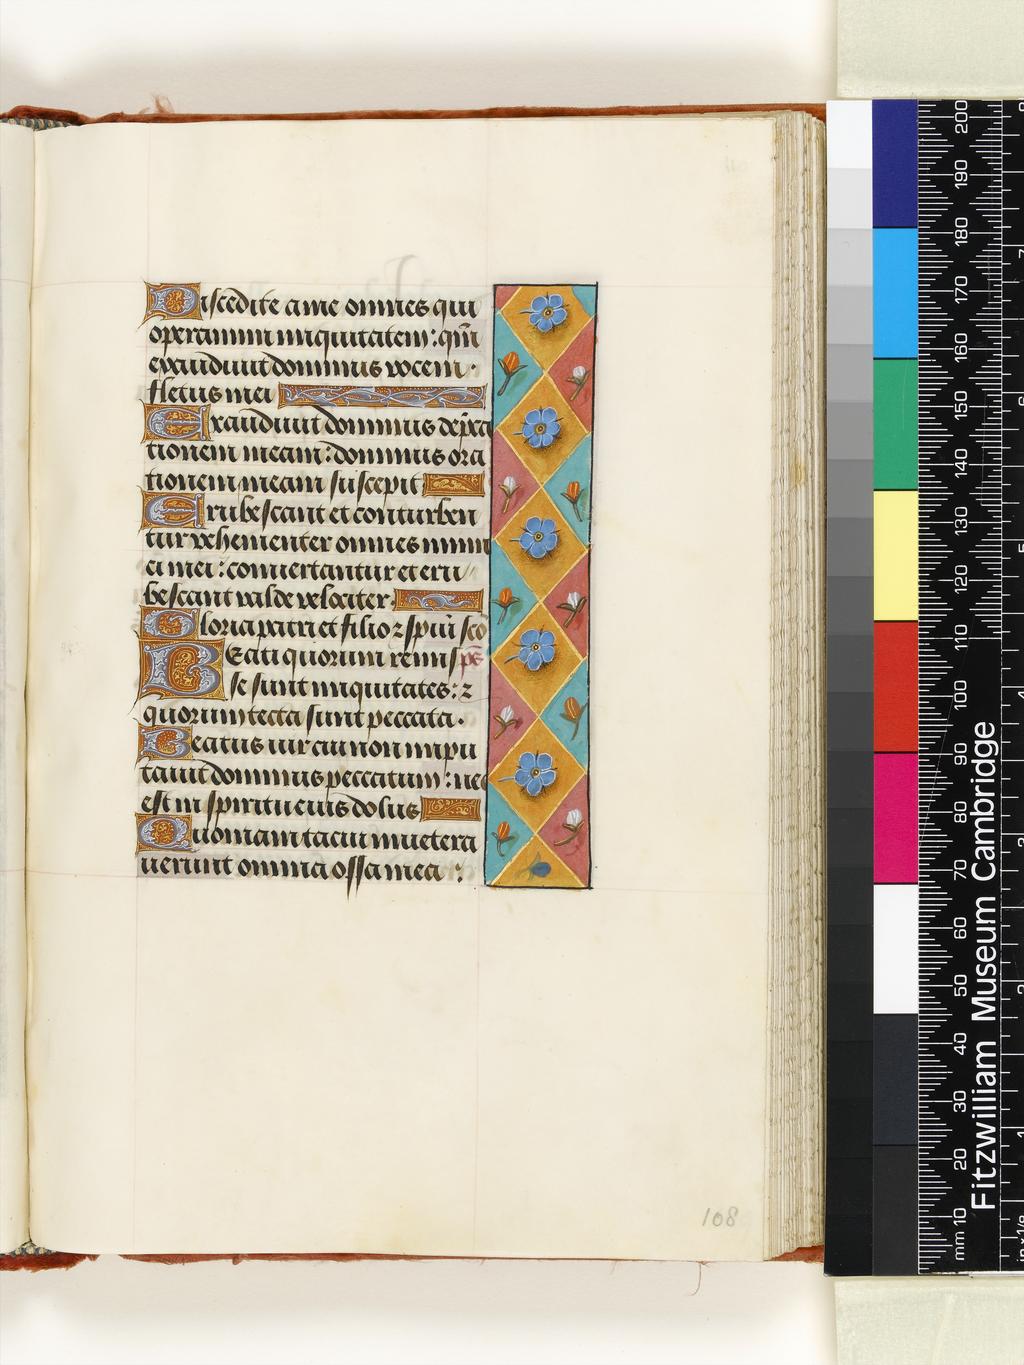 Discedite a me omnes qui
operamini iniquitatem: qm̄
exaudiuit dominus vocem
fletus mei
Exaudiuit dominus dep̄ca
tionem meam: dominus ora
tionem meam suscepit
Erubescant et conturben
tur vehementer omnes inimi
ci mei: conuertantur et eru
bescant valde velociter.
Gloria patri et filio z spiū sco̅
Beati quorum remis ps̄
se sunt iniquitates: z
quorum tecta sunt peccata.
Beatus uir cui non impu
tauit dominus peccatum: nec
est in spiritu eius dolus
Quoniam tacui inuetera
uerunt omnia ossa mea:
108
Fitzwilliam Museum Cambridge
mm 10 20 30 40 50 60 70 80 90 100 110 120 130 140 150 160 170 180 190 200